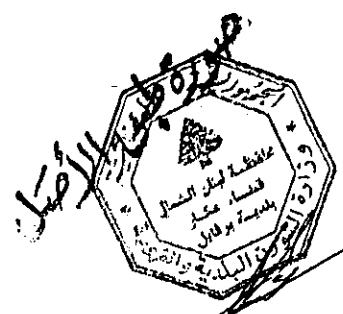 صورة طبق الأصل
الجمهورية
محافظة لبنان الشمالي
قضاء عكار
بلدية برقايل
وزارة الشؤون البلدية